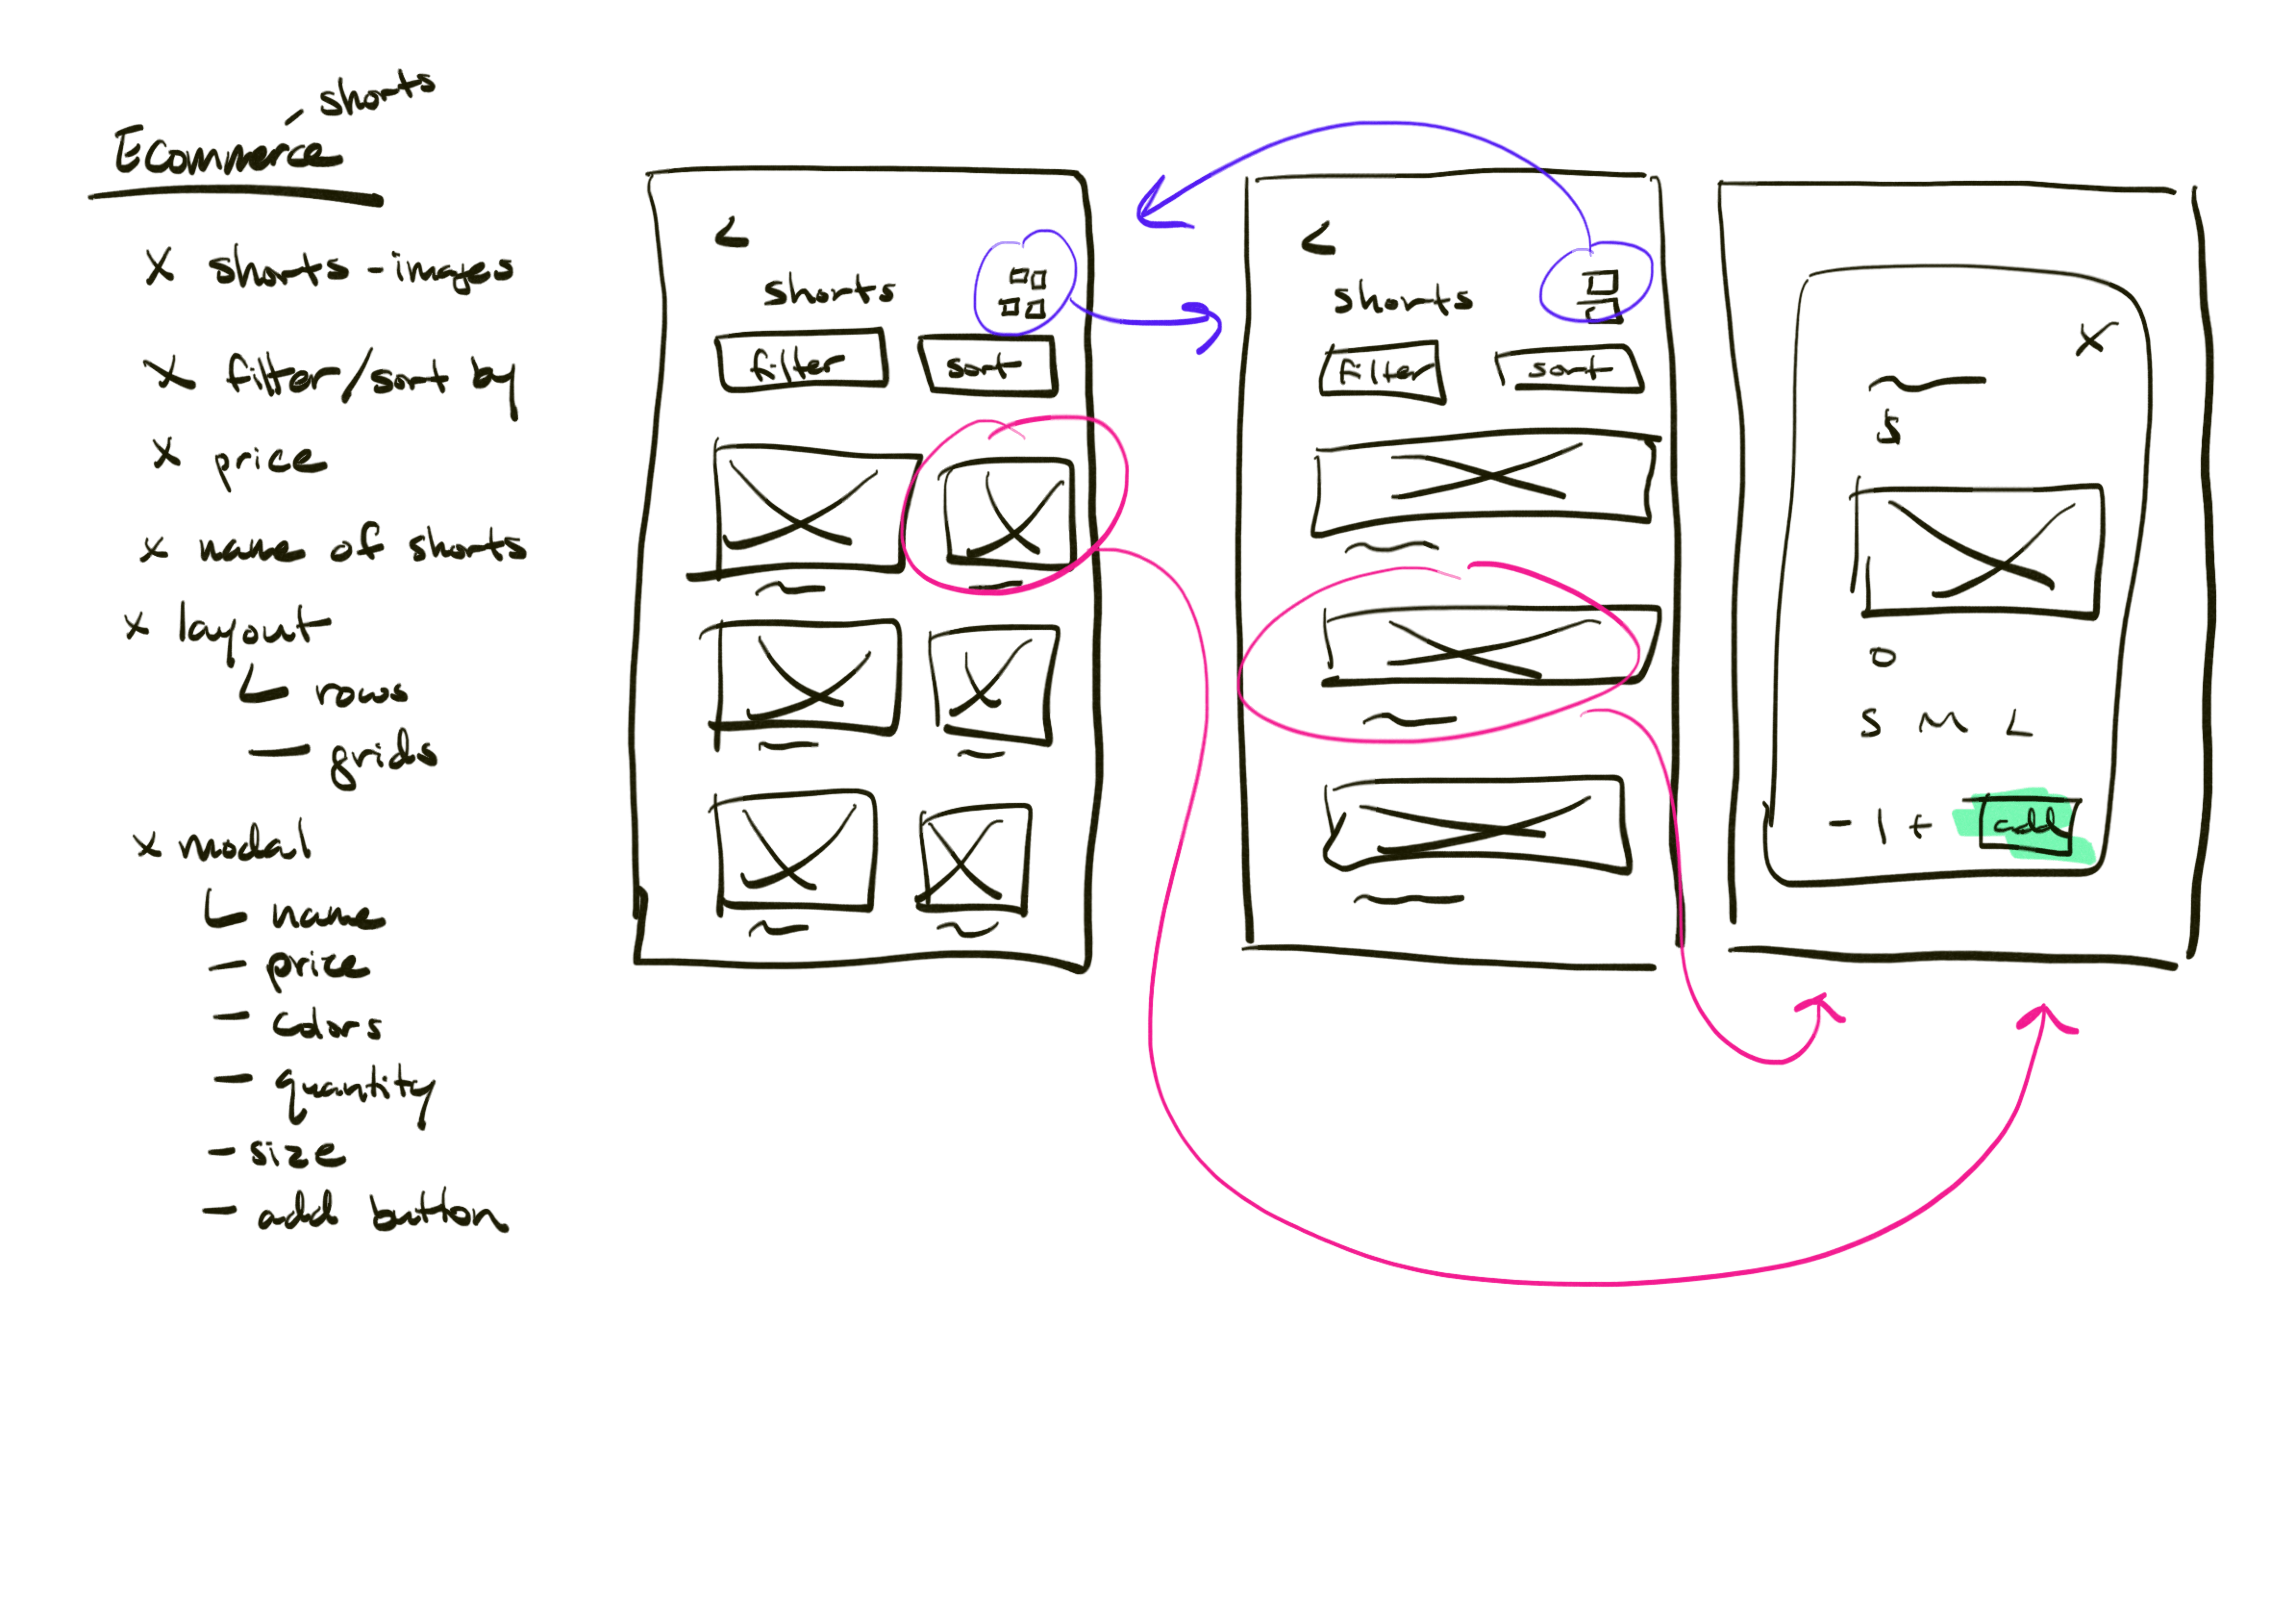 - shorts
Ecommerce
x shorts - images
x filter/sort by
x price
x name of shorts
x layout
rows
- grids
x modal
name
- price
- colors
- quantity
- size
- add button
<
shorts
filter
sort
<
shorts
filter
sort
x
S M L
- 1 +
add